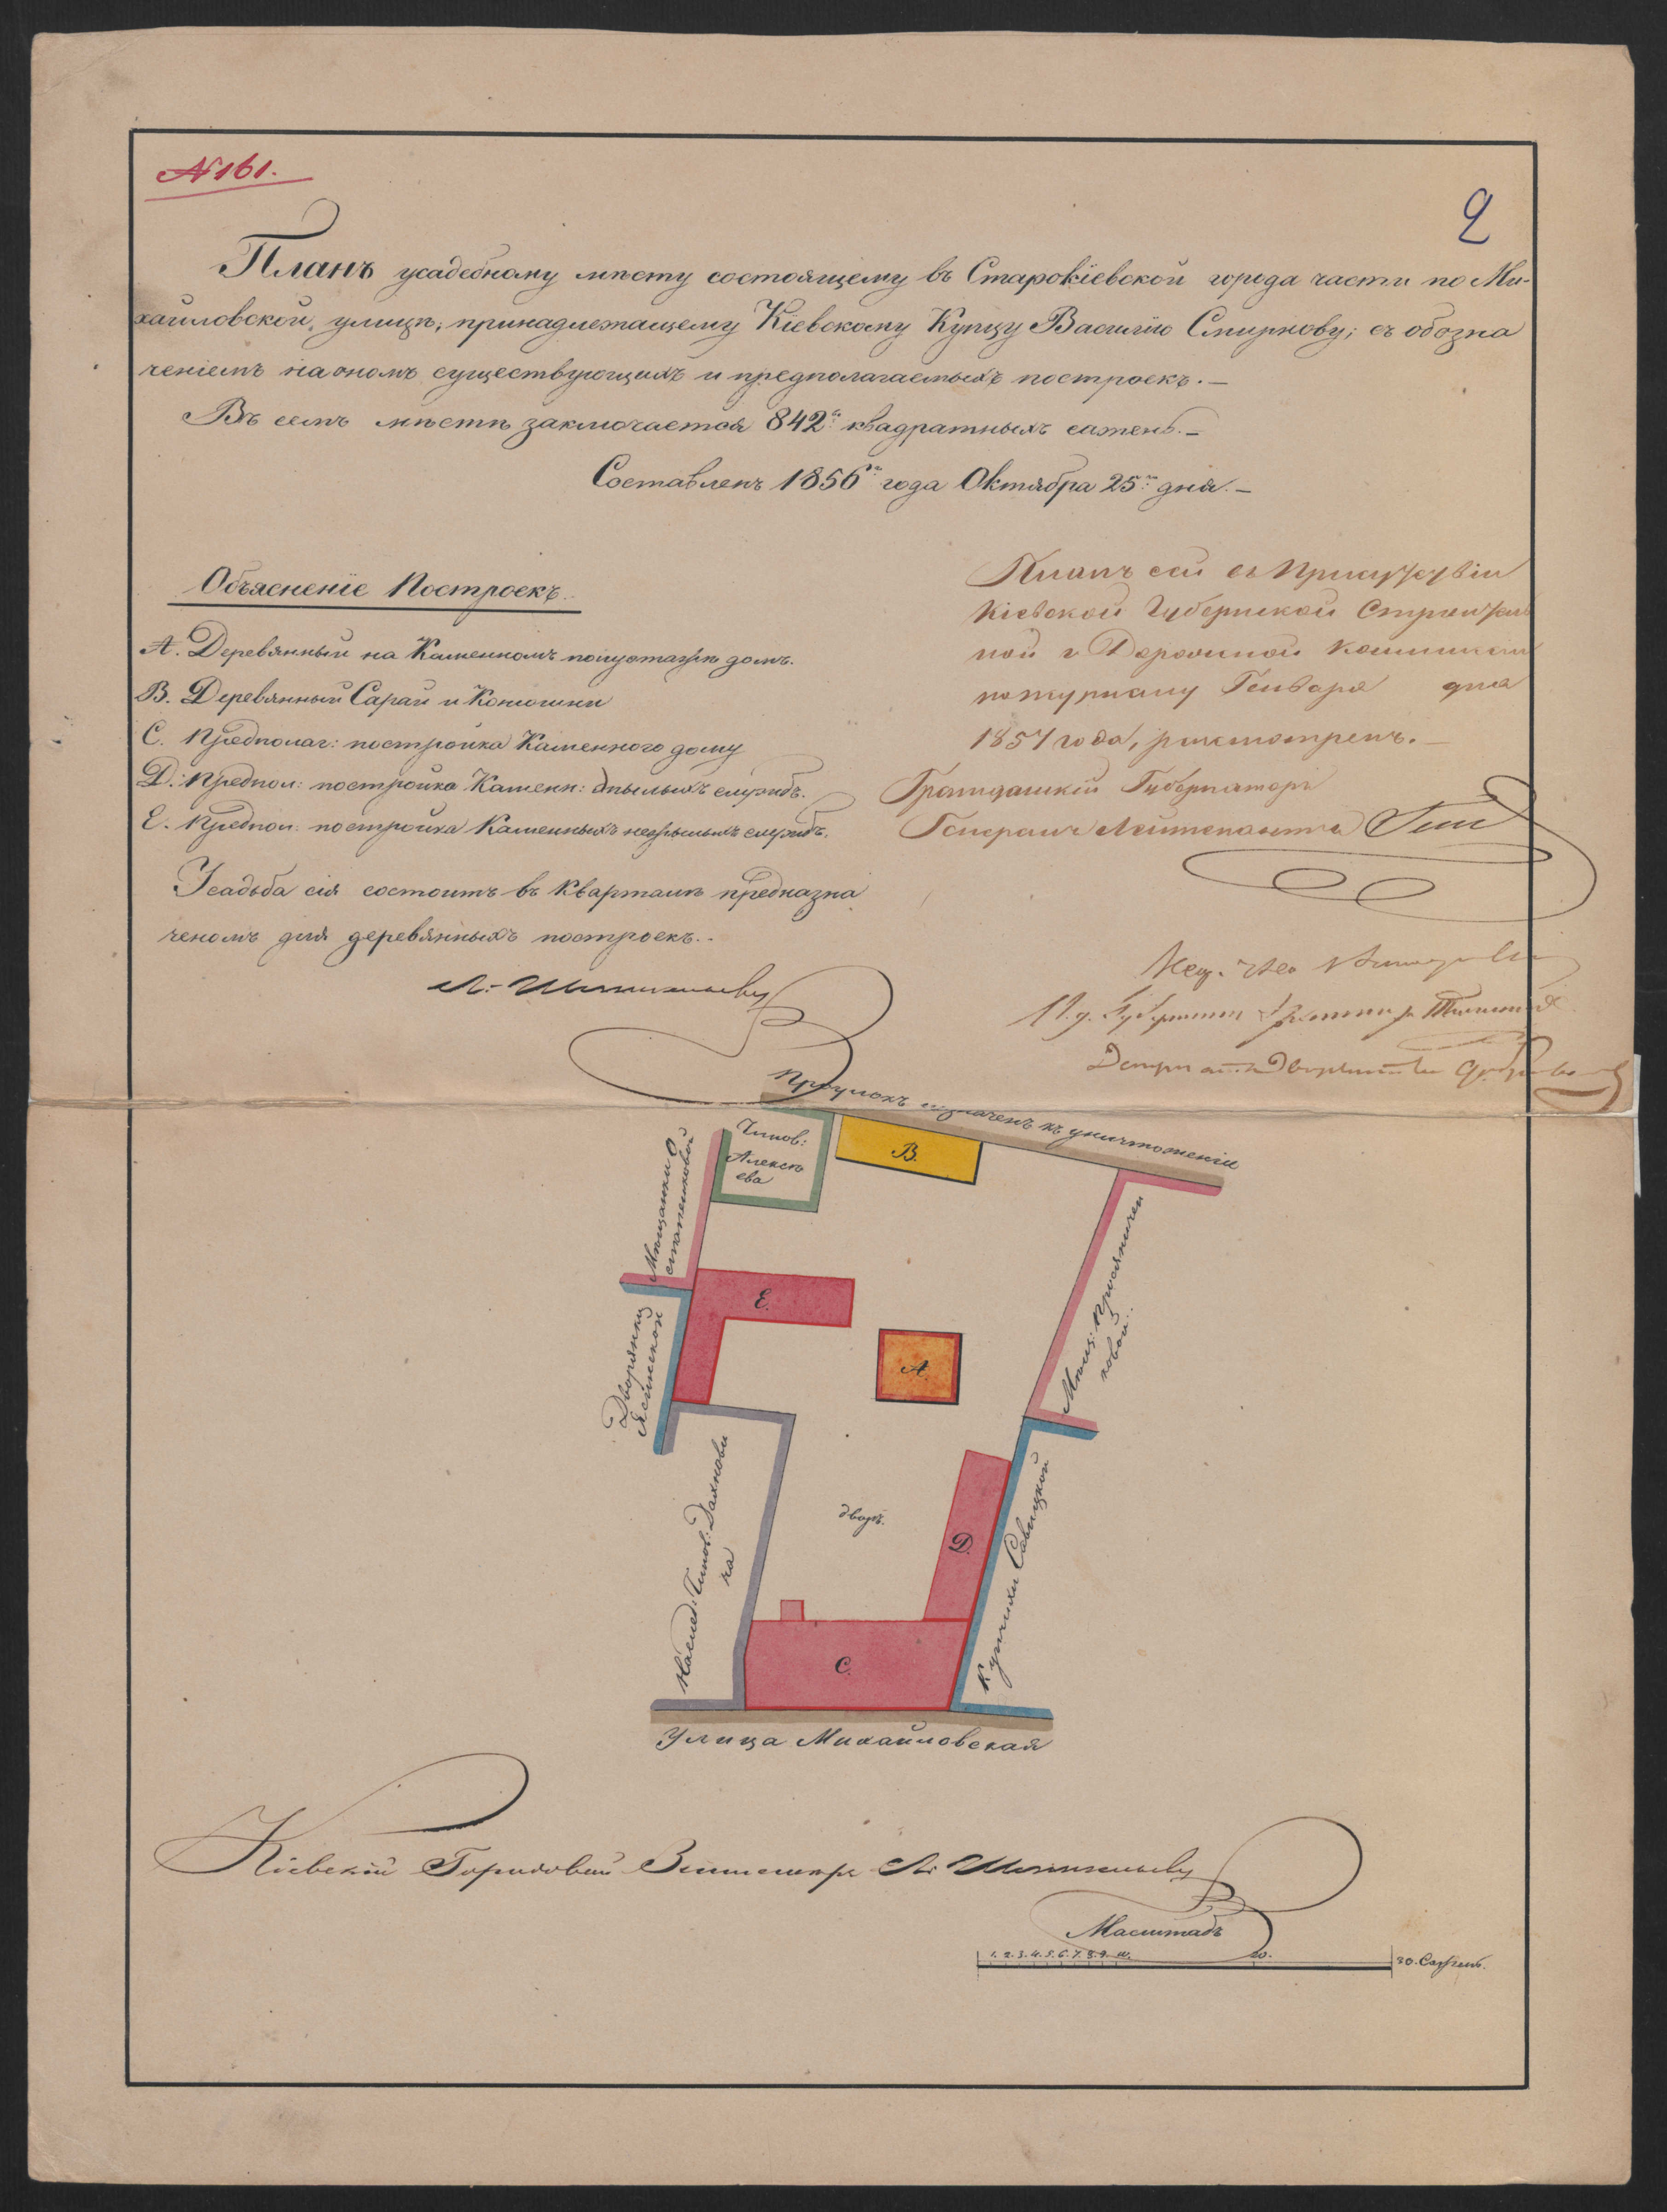 №161.
2
Планъ усадебному мѣсту состоящему въ Старокіевской города части по Ми-
хайловской улицѣ, принадлежащему Кіевскому Купцу Василію Смирнову; съ обозна
ченіемъ на ономъ существующихъ и предполагаемыхъ построекъ.—
Въ семъ мѣстѣ заключается 842 квадратныхъ сажень.—
Составленъ 1856 года Октября 25 дня.—
Объясненіе Построекъ.
А. Деревянный на Каменномъ полуэтажѣ домъ.
В. Деревянный Сарай и Конюшни
С. Предполаг: постройка Каменного дому
D. Предпол: постройка Каменн: жилыхъ службъ.
Е. Предпол: постройка Каменныхъ нежилыхъ службъ.
Усадьба сія состоитъ въ Кварталѣ предназна
ченомъ для деревянныхъ построекъ.
Планъ сей въ Присутствіи
Кіевской Губернской Строитель
ной и Дорожной Коммисіи
по журналу Генваря дня
1857 года, разсмотренъ.—
Гражданскій Губернаторъ
Генералъ Лейтенантъ
Проулокъ назначенъ къ уничтоженію
Чинов:
Алексѣ
ева
В.
Мѣщанки
Е.
А.
Дворянки
Мѣщ:
Наслед: Чинов:
дворъ.
D.
Купчихи Савицкой
С.
Улица Михайловская
Кіевскій Городовой Землемѣръ
Масштабъ
1. 2. 3. 4. 5. 6. 7. 8. 9. 10. 20. 30. Сажень.